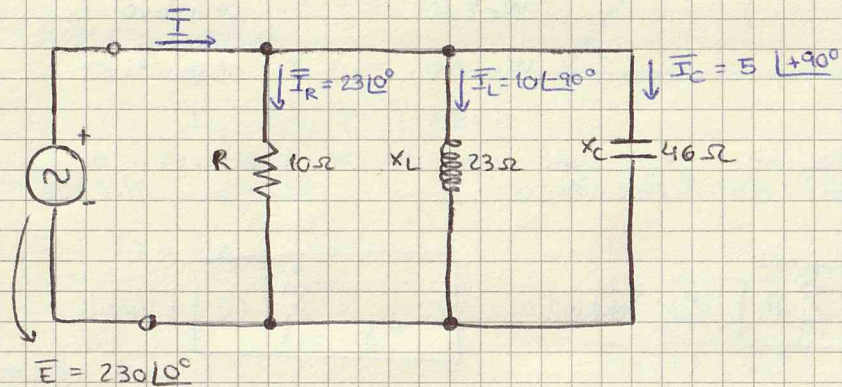 I̅
I̅_R = 23∠0°
I̅_L = 10∠-90°
I̅_C = 5 ∠+90°
+
-
R
10Ω
X_L
23Ω
X_C
46Ω
E̅ = 230∠0°